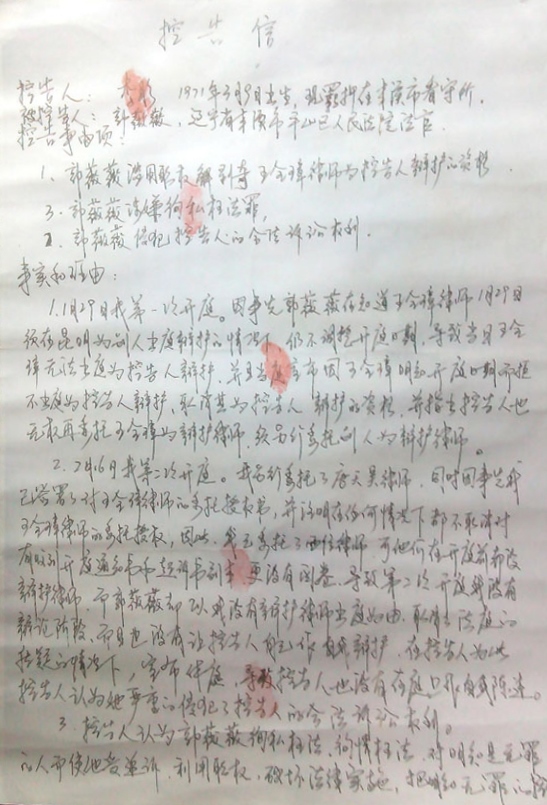 控告信
控告人： 李 1971年3月9日出生，现羁押在本溪市看守所。
被控告人：郭薇薇，辽宁省本溪市平山区人民法院法官。
控告事由项：
1、郭薇薇滥用职权解剥夺王全璋律师为控告人辩护的资格
3.郭薇薇涉嫌徇私枉法罪，
2.郭薇薇侵犯控告人的合法诉讼权利.
事实和理由：
1.1月29日我第一次开庭。因事先郭薇薇在知道王全璋律师1月29日
须在昆明为别人出庭辩护的情况下仍不调整开庭日期，导致当日王全
璋无法出庭为控告人辩护，并且当庭宣布因王全璋明知开庭日期而拒
不出庭为控告人辩护，取消其为控告人辩护的资格，并指出控告人也
无权再委托王全璋为辩护律师，须另行委托别人为辩护律师。
2.2月6日我第二次开庭。我另行委托了庞天昊律师，同时因事先我
已签署了对王全璋律师的委托授权书，并注明在任何情况下都不取消对
王全璋律师的委托授权，因此，我已委托了两位律师。可他们在开庭前都没
有收到开庭通知书和起诉书副本更没有阅卷，导致第二次开庭我没有
辩护律师，而郭薇薇却以我没有辩护律师出庭为由，取消法庭的
辩论阶段，而且也没有让控告人自己作自我辩护，在控告人为此
质疑的情况下，宣布休庭，导致控告人也没有在庭上作自我陈述。
控告人认为她严重的侵犯了控告人的合法诉讼权利。
3.控告人认为郭薇薇徇私枉法，徇情枉法，对明知是无罪
的人而使他受追诉，利用职权，破坏法律实施，把明知无罪的